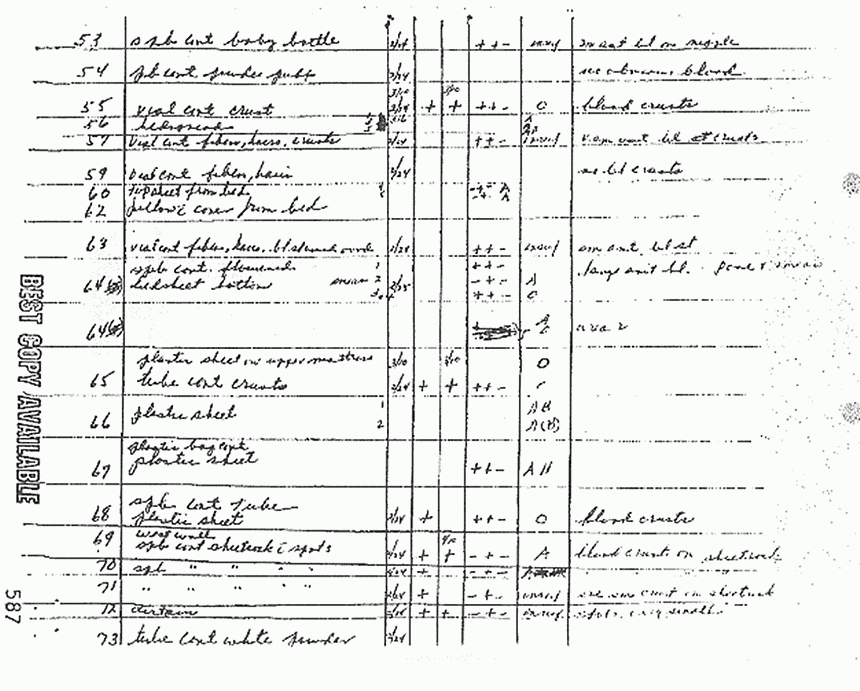 53 spb cont baby bottle 2/24 ++- insuf sm amt bl on nipple
54 pb cont powder puff 2/24 no obvious blood
3/10 3/10
55 vial cont crust 2/24 + + ++- O blood crusts
56 bedspread A
57 vial cont fibers, hairs, crusts 2/24 ++- insuf v sm amt bl st crusts
59 vial cont fibers, hairs 2/24 no bl crusts
60 top sheet from bed -+- A
62 pillow c cover from bed -+- A
63 vial cont fibers, hairs, bl stained 2/24 ++- insuf sm amt bl st
spb cont. 1 ++- large amt bl.
64 bedsheet bottom 2 2/25 -+- A
3 ++- O
64 A area 2
plastic sheet on upper mattress 3/10 3/10 O
65 tube cont crusts 2/24 + + ++-
66 plastic sheet 1 AB
2 A(B)
plastic bag cont
67 plastic sheet ++- AB
spb cont tube
68 plastic sheet 2/24 + ++- O blood crusts
69 west wall
spb cont sheetrock c spots 2/24 + + -+- A blood crust on sheetrock
70 spb " " " " 2/24 + -+-
71 " " " " 2/24 + -+- insuf sm crust on sheetrock
72 curtain + + -+- insuf spots very small
73 tube cont white powder 2/24
BEST COPY AVAILABLE
587